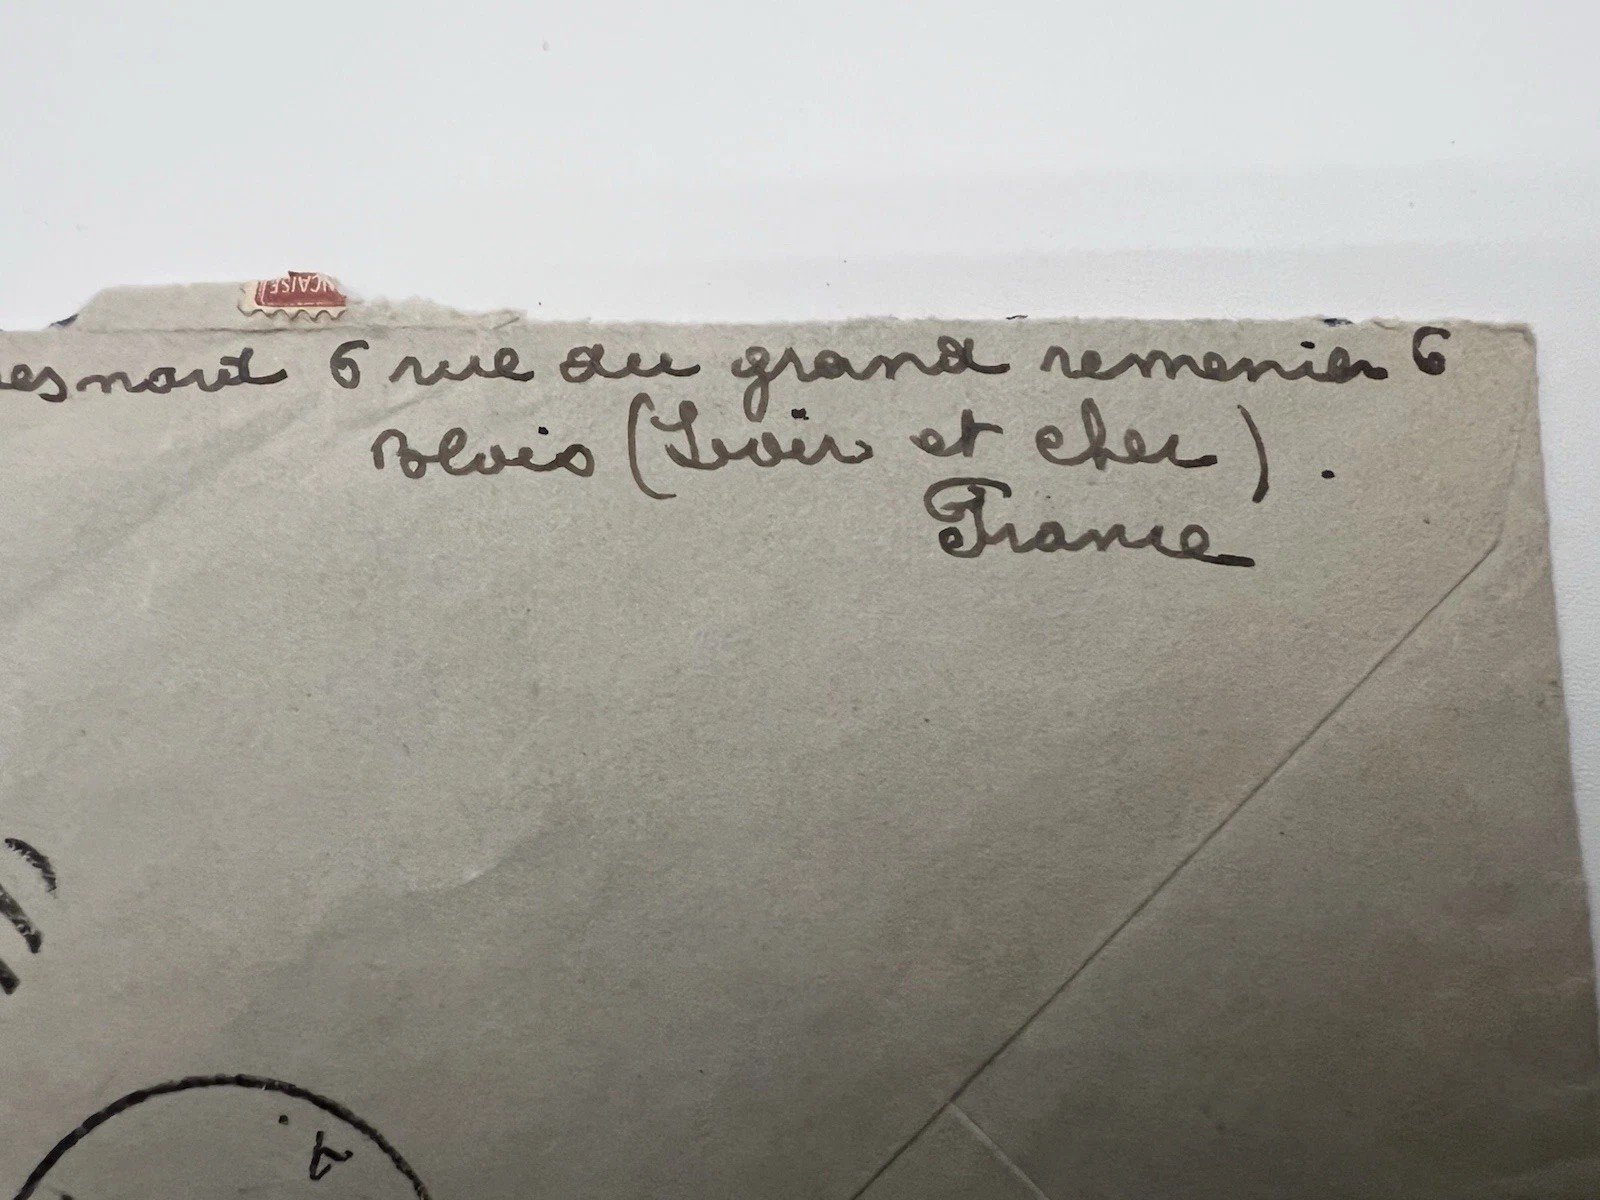 NÇAISE
esnard 6 rue du grand remenier 6
Blois (Loir et cher).
France